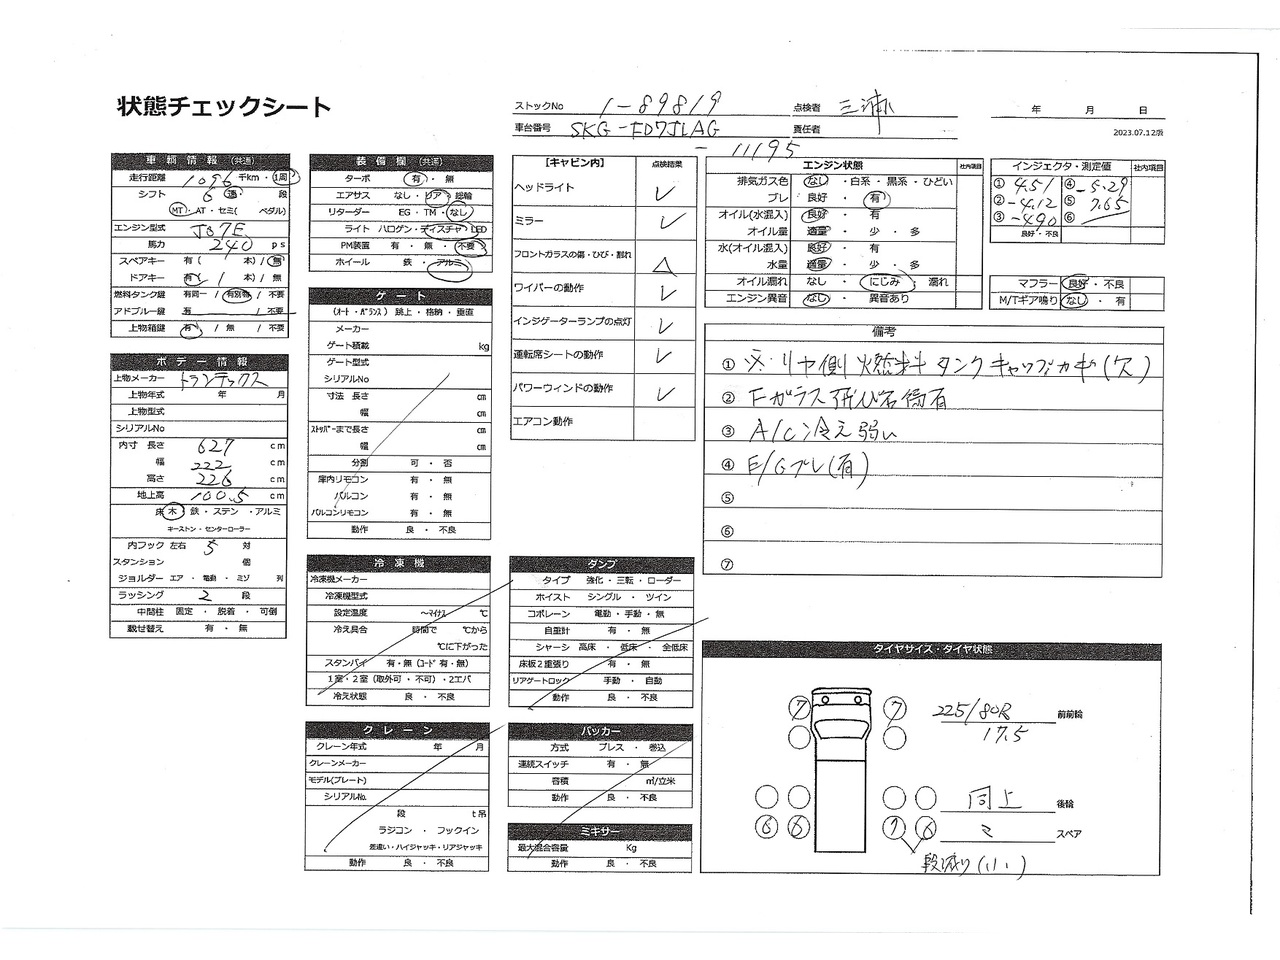 状態チェックシート
ストックNo 1-89819
車台番号 SKG-FD7JLAG
-11195
点検者 三浦
責任者
年 月 日
2023.07.12版
車輌情報(共通)
走行距離 1096 千km・1周
シフト 6 速 段
MT・AT・セミ( ペダル)
エンジン型式 J07E
馬力 240 ps
スペアキー 有( 本)/無
ドアキー 有( 1 本)/無
燃料タンク鍵 有同一/有別物/不要
アドブルー鍵 有 / 不要
上物箱鍵 有 / 無 / 不要
ボデー情報
上物メーカー トランテックス
上物年式 年 月
上物型式
シリアルNo
内寸 長さ 627 cm
幅 222 cm
高さ 226 cm
地上高 100.5 cm
床 木・鉄・ステン・アルミ
キーストン・センターローラー
内フック 左右 5 対
スタンション 個
ジョルダー エア・電動・ミゾ 列
ラッシング 2 段
中間柱 固定・脱着・可倒
載せ替え 有・無
装備欄(共通)
ターボ 有・無
エアサス なし・リア・総輪
リターダー EG・TM・なし
ライト ハロゲン・ディスチャ・LED
PM装置 有・無・不要
ホイール 鉄・アルミ
ゲート
(オート・バランス) 跳上・格納・垂直
メーカー
ゲート積載 kg
ゲート型式
シリアルNo
寸法 長さ cm
幅 cm
ストッパーまで長さ cm
幅 cm
分割 可・否
庫内リモコン 有・無
バルコン 有・無
バルコンリモコン 有・無
動作 良・不良
冷凍機
冷凍機メーカー
冷凍機型式
設定温度 ～マイナス ℃
冷え具合 時間で ℃から
℃に下がった
スタンバイ 有・無(コード 有・無)
1室・2室(取外可・不可)・2エバ
冷え状態 良・不良
クレーン
クレーン年式 年 月
クレーンメーカー
モデル(プレート)
シリアルNo.
段 t吊
ラジコン・フックイン
差違い・ハイジャッキ・リアジャッキ
動作 良・不良
【キャビン内】 点検結果
ヘッドライト ✓
ミラー ✓
フロントガラスの傷・ひび・割れ △
ワイパーの動作 ✓
インジケーターランプの点灯 ✓
運転席シートの動作 ✓
パワーウィンドの動作 ✓
エアコン動作
ダンプ
タイプ 強化・三転・ローダー
ホイスト シングル・ツイン
コボレーン 電動・手動・無
自重計 有・無
シャーシ 高床・低床・全低床
床板2重張り 有・無
リアゲートロック 手動・自動
動作 良・不良
パッカー
方式 プレス・巻込
連続スイッチ 有・無
容積 ㎥/立米
動作 良・不良
ミキサー
最大混合容量 Kg
動作 良・不良
エンジン状態 社内項目
排気ガス色 なし・白系・黒系・ひどい
ブレ 良好・有
オイル(水混入) 良好・有
オイル量 適量・少・多
水(オイル混入) 良好・有
水量 適量・少・多
オイル漏れ なし・にじみ・漏れ
エンジン異音 なし・異音あり
インジェクタ・測定値 社内項目
① 4.51 ④ -5.29
② -4.12 ⑤ 7.65
③ -4.90 ⑥
良好・不良
マフラー 良好・不良
M/Tギア鳴り なし・有
備考
① ※リヤ側 燃料タンクキャップカギ(欠)
② Fガラス飛び石傷有
③ A/C冷え弱い
④ E/Gブレ(有)
⑤
⑥
⑦
タイヤサイズ・タイヤ状態
7 7 225/80R 前前輪
17.5
同上 後輪
6 6 7 6 スペア
段減り(小)